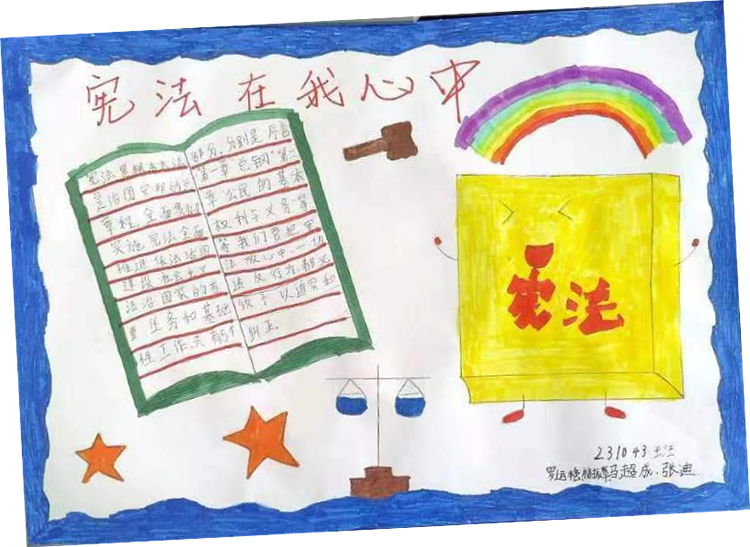 宪法在我心中
宪法是根本大法
是治国安邦的总
章程,全面贯彻
实施宪法全面
推进依法治国
建设社会主义
法治国家的首
要任务和基础
性工作.共有5个
部分,分别是序言
"第一章"总纲"第二
章"公民的基本
权利与义务"等
等我们要把宪
法放心中,一切
违反行为,都必
须予以追究和
纠正.
宪法
231043
马超成.张迪